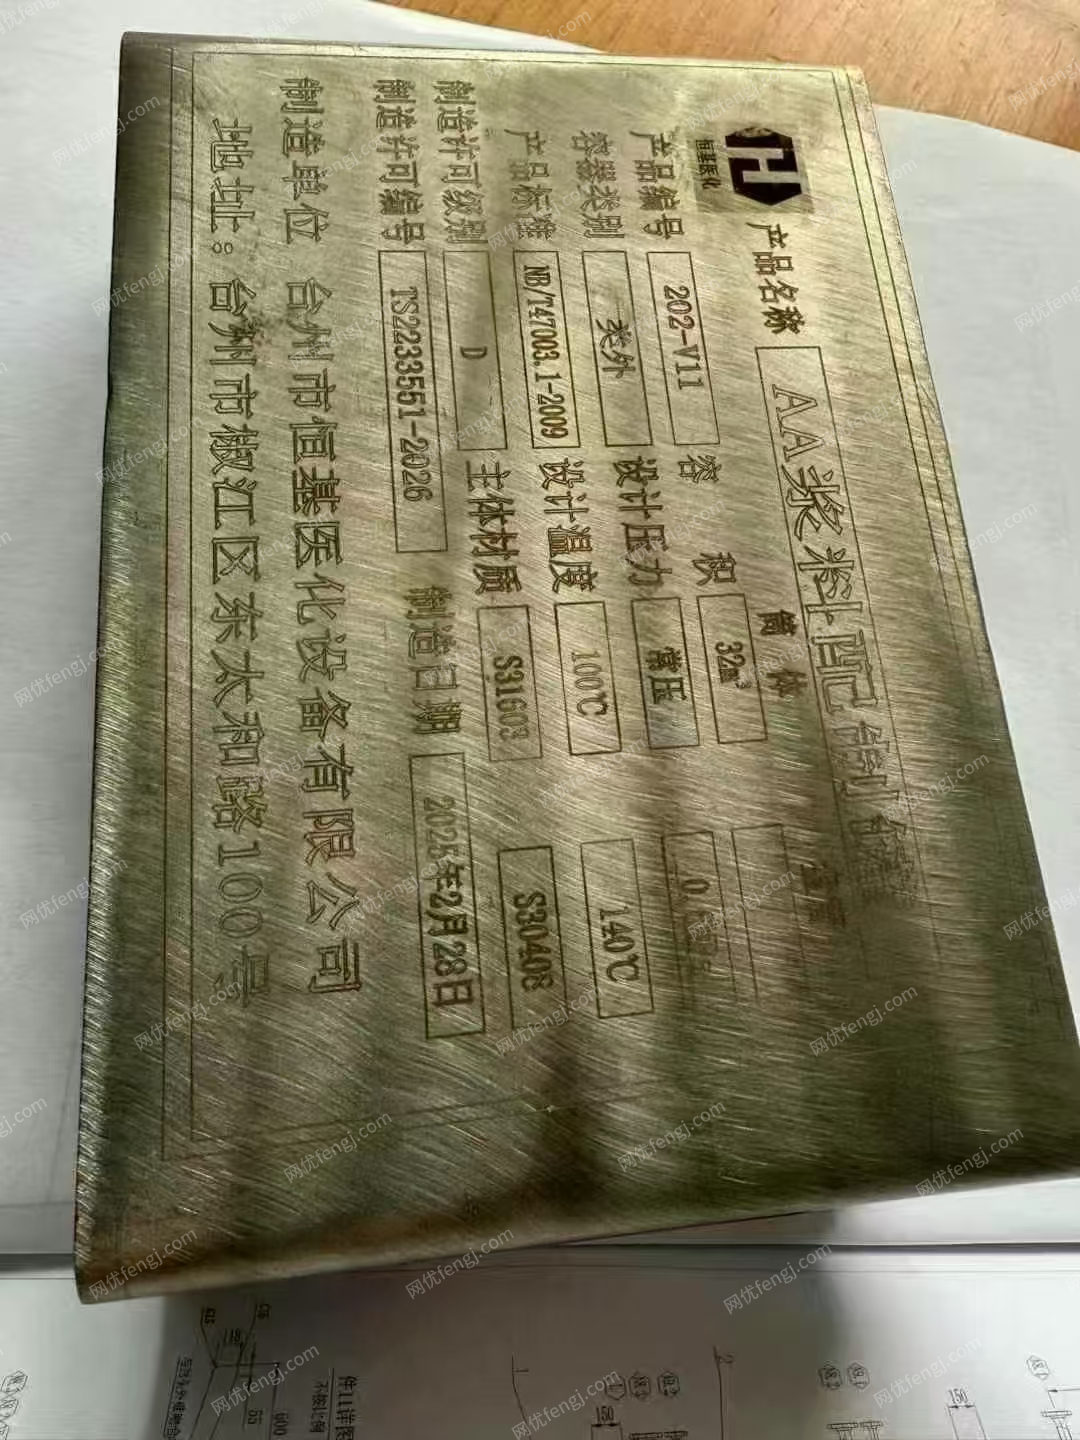 恒基医化
产品名称 AA浆料配制罐
筒体
产品编号 202-V11 容积 32m³
容器类别 类外 设计压力 常压
产品标准 NB/T47003.1-2009 设计温度 100℃ 140℃
制造许可级别 D 主体材质 S31603 S30408
制造许可编号 TS2233551-2026 制造日期 2025年2月28日
制造单位 台州市恒基医化设备有限公司
地址:台州市椒江区东太和路100号
件11详图
不按比例
600
150
网优fengj.com